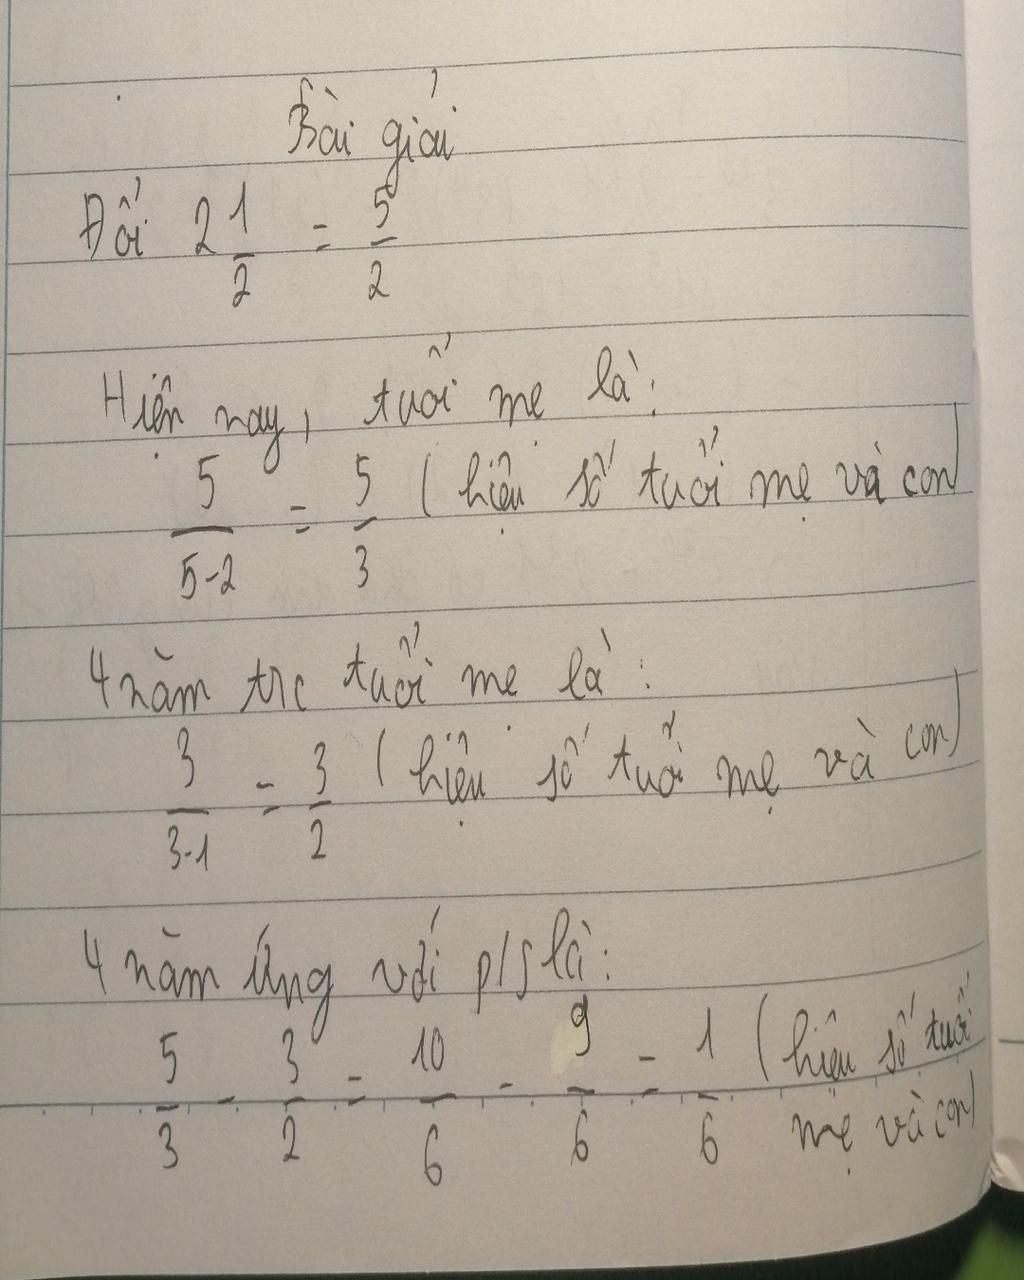 Bài giải
Đổi 2 1/2 = 5/2
Hiện nay, tuổi mẹ là:
5/(5-2) = 5/3 (hiệu số tuổi mẹ và con)
4 năm trc tuổi mẹ là:
3/(3-1) = 3/2 (hiệu số tuổi mẹ và con)
4 năm ứng với p/s là:
5/3 - 3/2 = 10/6 - 9/6 = 1/6 (hiệu số tuổi
mẹ và con)